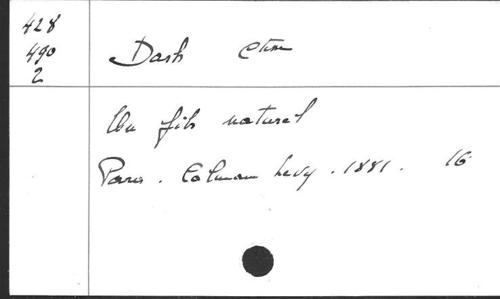 428
490
2
Dash Ctsse
Un fils naturel
Paris. Calmann Levy. 1881. 16